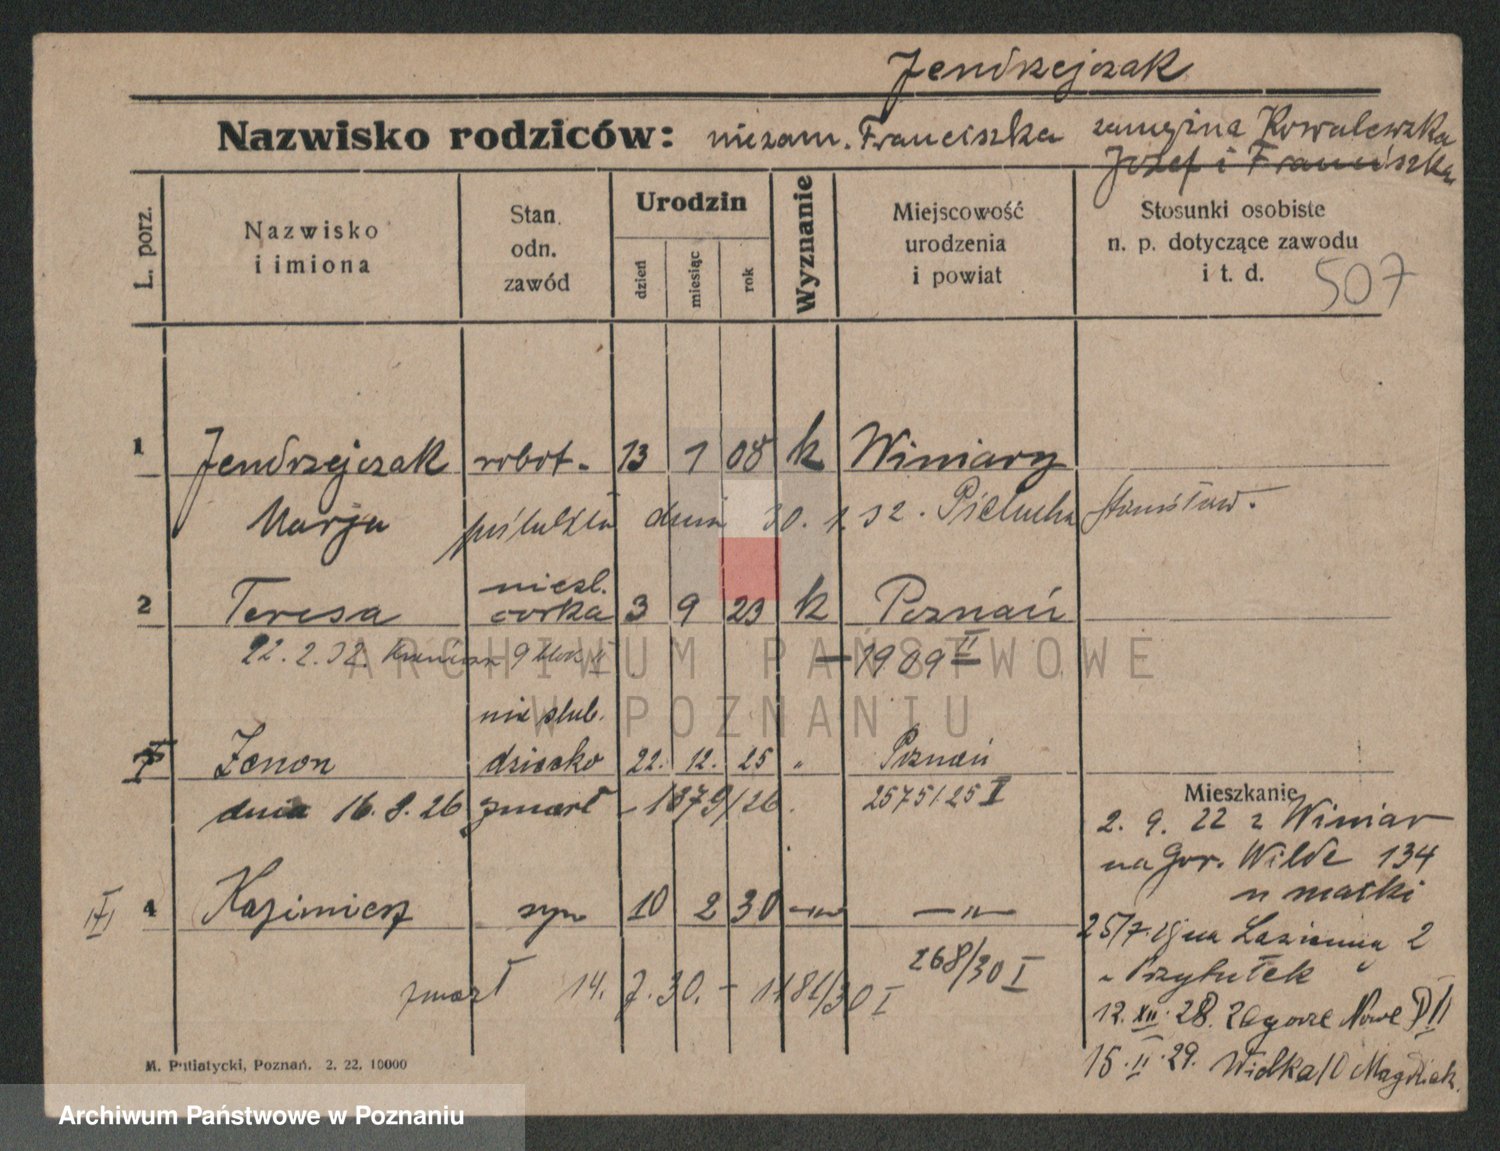 Jendrzejczak
Nazwisko rodziców: niezam. Franciszka zamężna Kowalewska
Józef i Franciszka
L. porz.
Nazwisko i imiona
Stan odn. zawód
Urodzin
dzień
miesiąc
rok
Wyznanie
Miejscowość urodzenia i powiat
Stosunki osobiste n. p. dotyczące zawodu i t. d.
507
1 Jendrzejczak robot. 13 1 08 k Winiary
Marja poślubiła dnia 30. 1 32. Pielucha Stanisław.
nieśl.
2 Teresa córka 3 9 23 k Poznań
22. 2. 32. 9 blok II — 1909 II
nie ślub.
Zenon dziecko 22. 12. 25 „ Poznań
dnia 16. 8. 26 zmarł - 1379/26. 2575/25 I
Mieszkanie
2. 9. 22 z Winiar
na Gór. Wilde 134
u matki
4 Kazimierz syn 10 2 30 —"— —"—
268/30 I
zmarł 14. 7. 30. - 1181/30 I
na Łazienną 2
Przytułek
12. XII. 28. Zagórze Nowe
15. II. 29. Wielka 10
M. Putiatycki, Poznań. 2. 22. 10000
ARCHIWUM PAŃSTWOWE
W POZNANIU
Archiwum Państwowe w Poznaniu